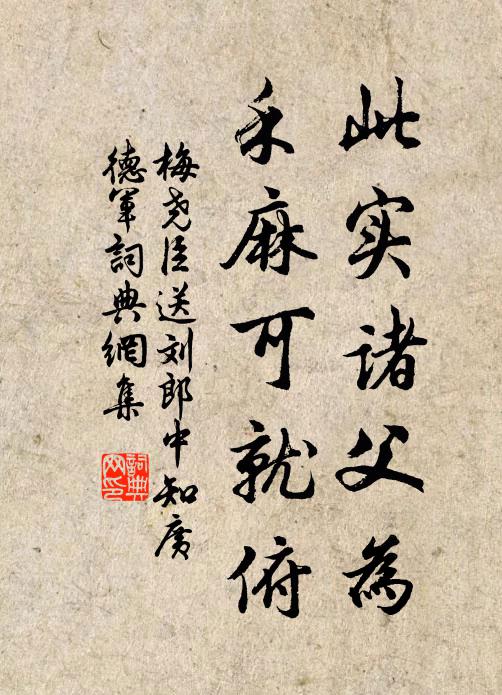 此实诸父为
禾麻可就俯
梅尧臣送刘郎中知广
德军詞典網集
詞典网印